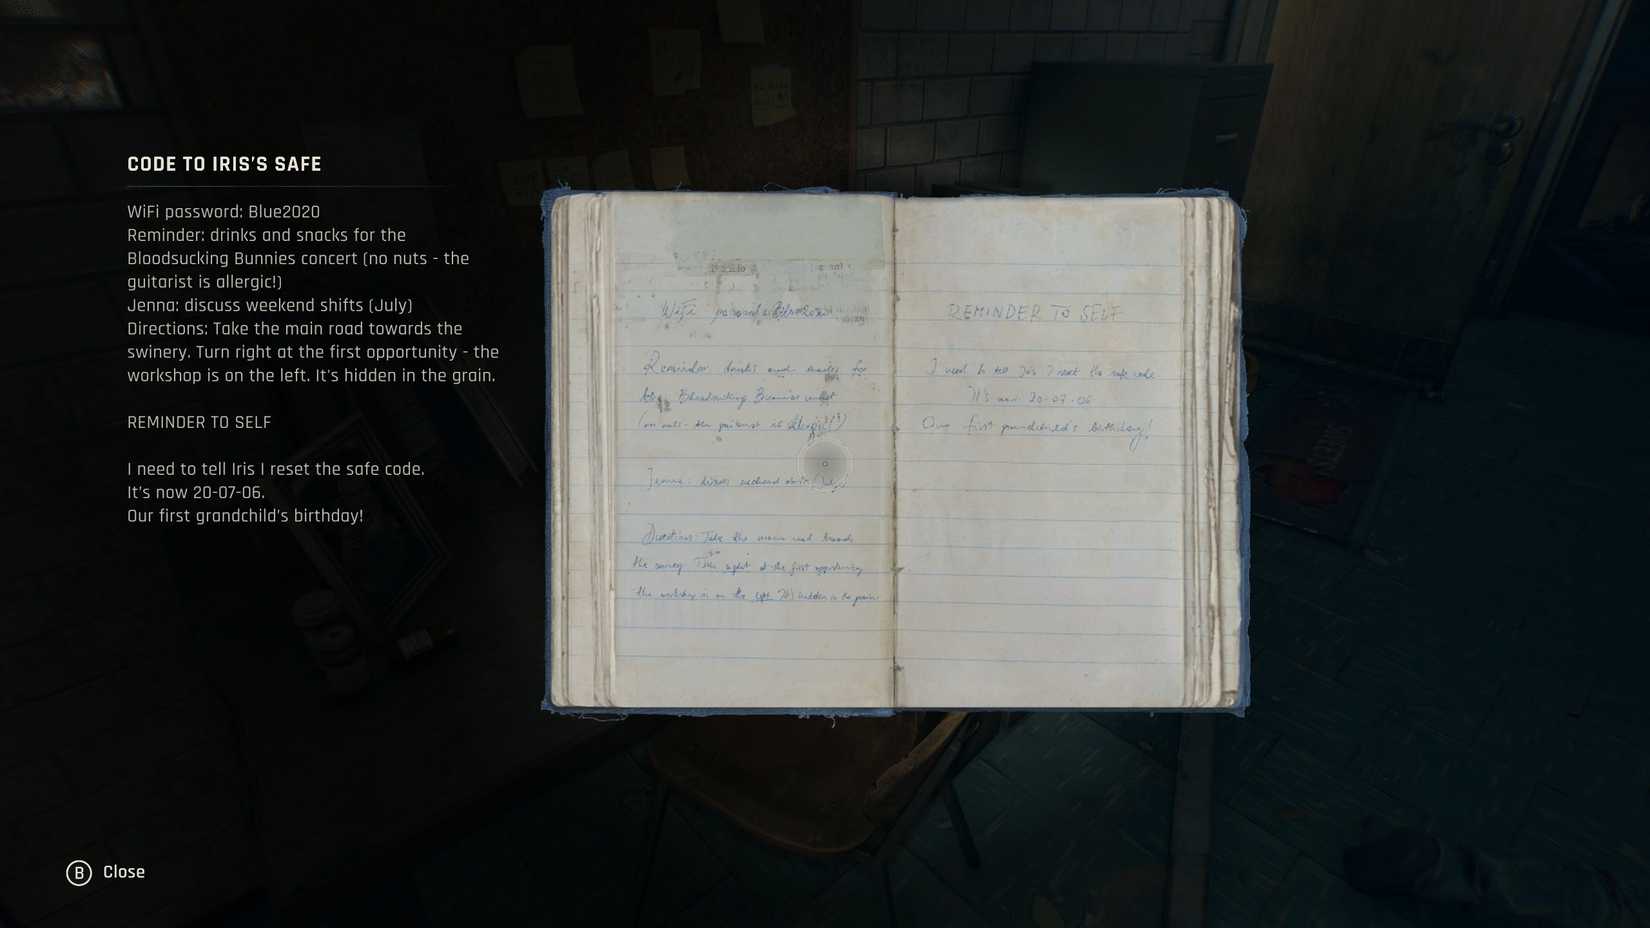 CODE TO IRIS'S SAFE
WiFi password: Blue2020
Reminder: drinks and snacks for the
Bloodsucking Bunnies concert (no nuts - the
guitarist is allergic!)
Jenna: discuss weekend shifts (July)
Directions: Take the main road towards the
swinery. Turn right at the first opportunity - the
workshop is on the left. It's hidden in the grain.
REMINDER TO SELF
I need to tell Iris I reset the safe code.
It's now 20-07-06.
Our first grandchild's birthday!
WiFi password: Blue2020
Reminder: drinks and snacks for
the Bloodsucking Bunnies concert
(no nuts - the guitarist is allergic!)
Jenna: discuss weekend shifts (July)
Directions: Take the main road towards
the swinery. Turn right at the first opportunity
the workshop is on the left. It's hidden in the grain.
REMINDER TO SELF
I need to tell Iris I reset the safe code
It's now 20-07-06
Our first grandchild's birthday!
B Close